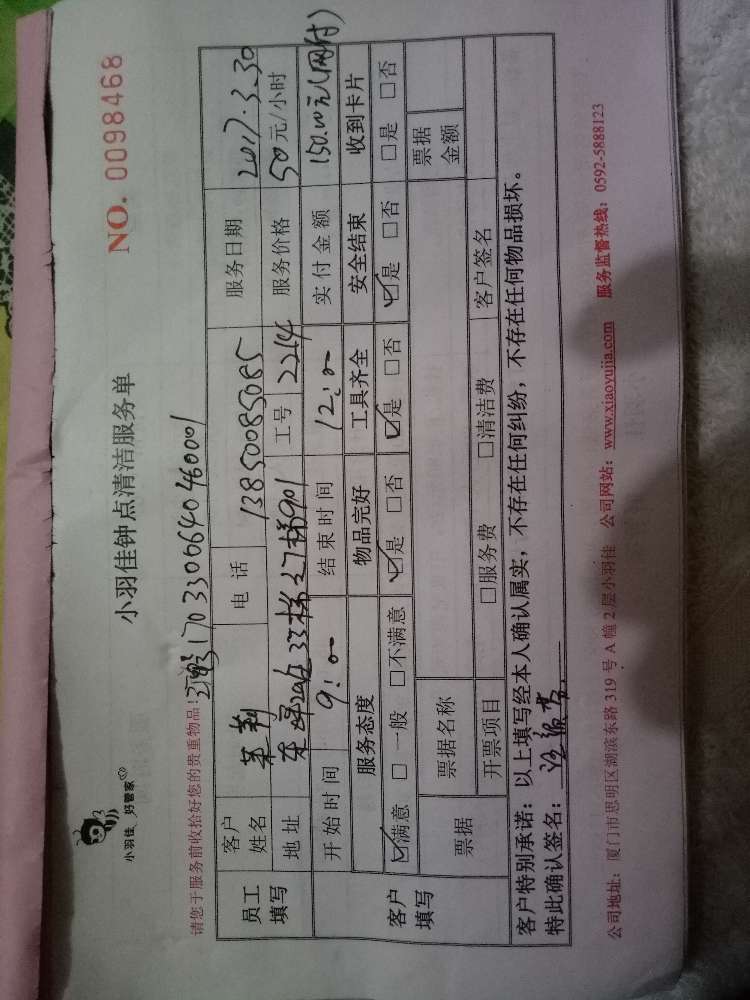 小羽佳 好管家
小羽佳钟点清洁服务单
NO. 0098468
请您于服务前收拾好您的贵重物品! 1703300640460001
员工填写 客户姓名 电话 13850085085 服务日期 2017.3.30
地址 33梯27梯901 工号 2214 服务价格 50元/小时
开始时间 9:00 结束时间 12:00 实付金额 150.00元(网付)
客户填写 服务态度 物品完好 工具齐全 安全结束 收到卡片
☑满意 □一般 □不满意 ☑是 □否 ☑是 □否 ☑是 □否 □是 □否
票据 票据名称 票据金额
开票项目 □服务费 □清洁费 客户签名
客户特别承诺:以上填写经本人确认属实,不存在任何纠纷,不存在任何物品损坏。
特此确认签名:
公司地址:厦门市思明区湖滨东路 319 号 A 幢 2 层小羽佳 公司网站:www.xiaoyujia.com 服务监督热线:0592-5888123